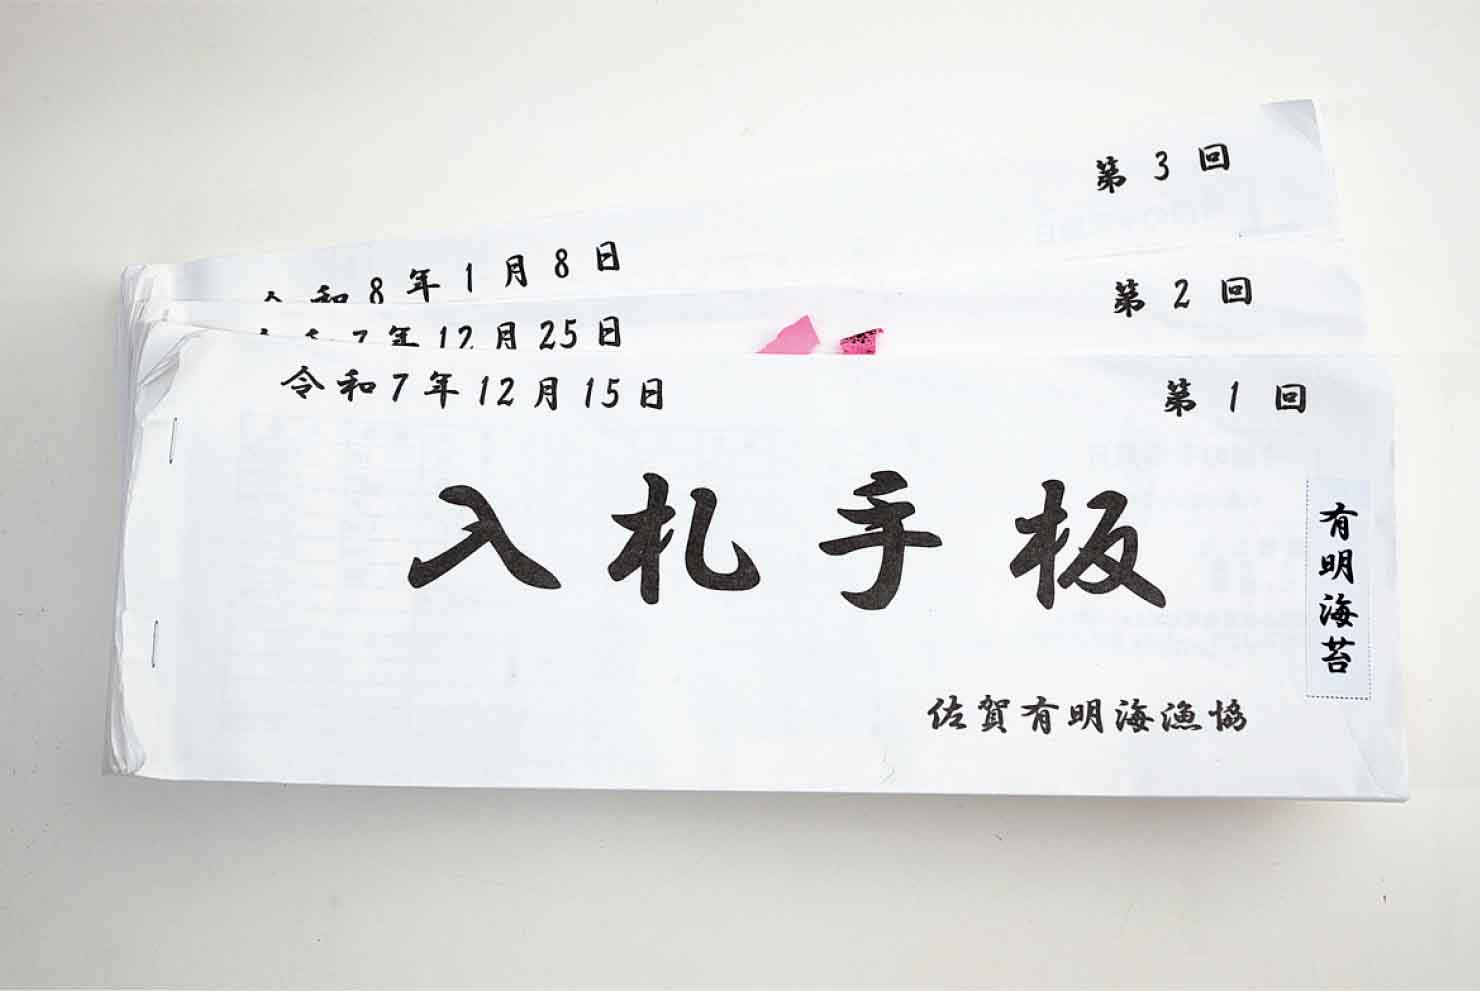 第3回
令和8年1月8日
第2回
令和7年12月25日
令和7年12月15日
第1回
入札手板
有明海苔
佐賀有明海漁協